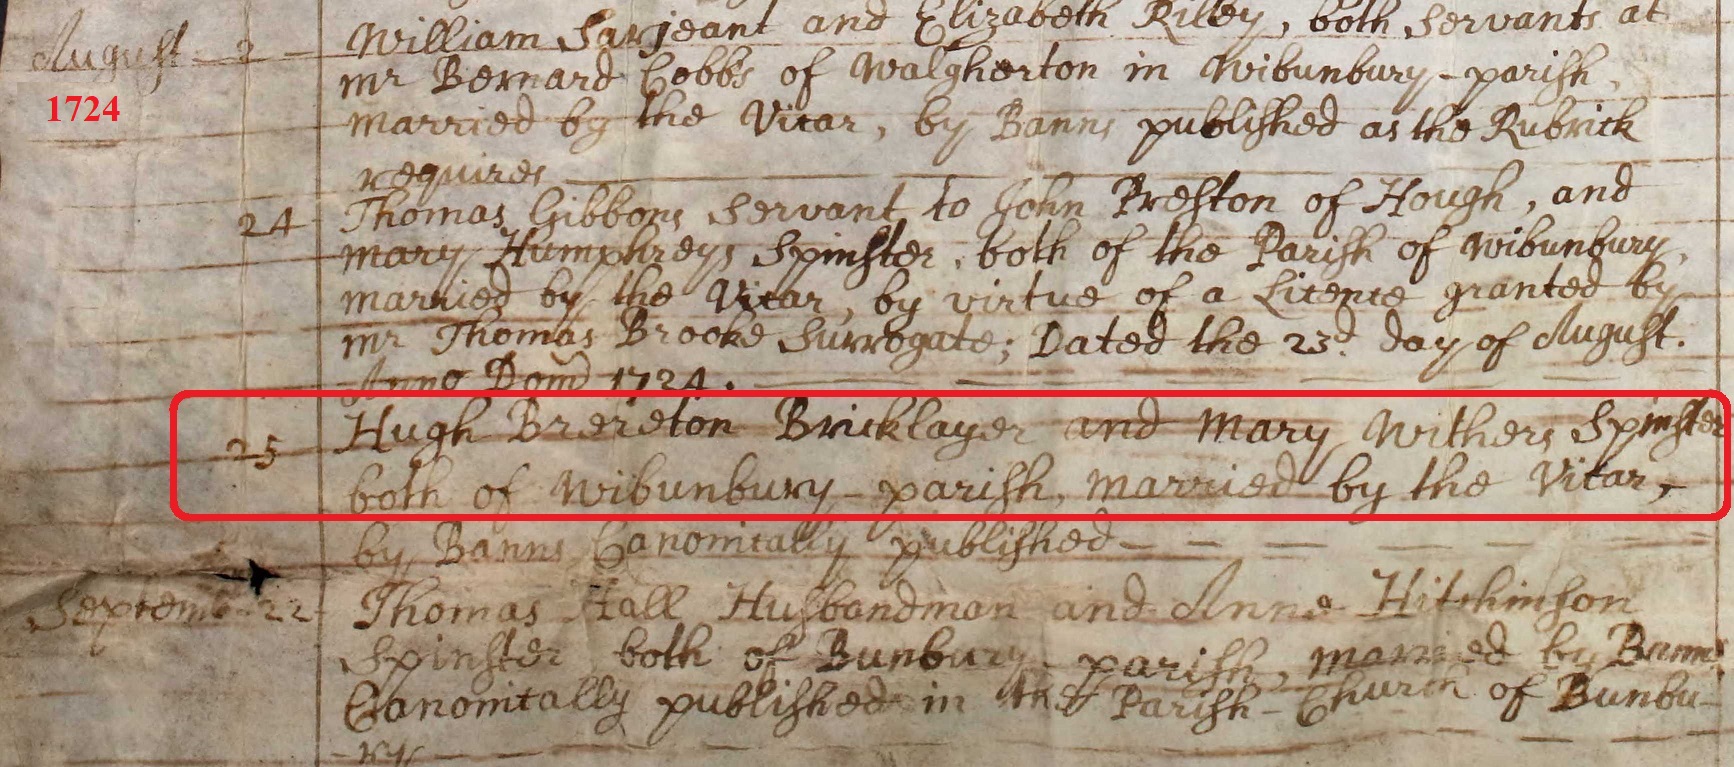 August 2 William Sarjeant and Elizabeth Rilley, both Servants at
1724
mr Bernard Cobbs of Walgherton in Wibunbury-parish,
married by the Vicar, by Banns published as the Rubrick
requires
24 Thomas Gibbons Servant to John Preston of Hough, and
mary Humphreys Spinster, both of the Parish of Wibunbury,
married by the Vicar, by virtue of a Licence granted by
mr Thomas Brooke Surrogate; Dated the 23d. day of August.
Anno Domi 1724.
25 Hugh Brereton Bricklayer and Mary Withers Spinster
both of Wibunbury-parish, married by the Vicar,
by Banns Canonically published
Septemb 22 Thomas Hall Husbandman and Anne Hitchinson
Spinster both of Bunbury-parish, married by Banns
Canonically published in the Parish-Church of Bunbu-
-ry